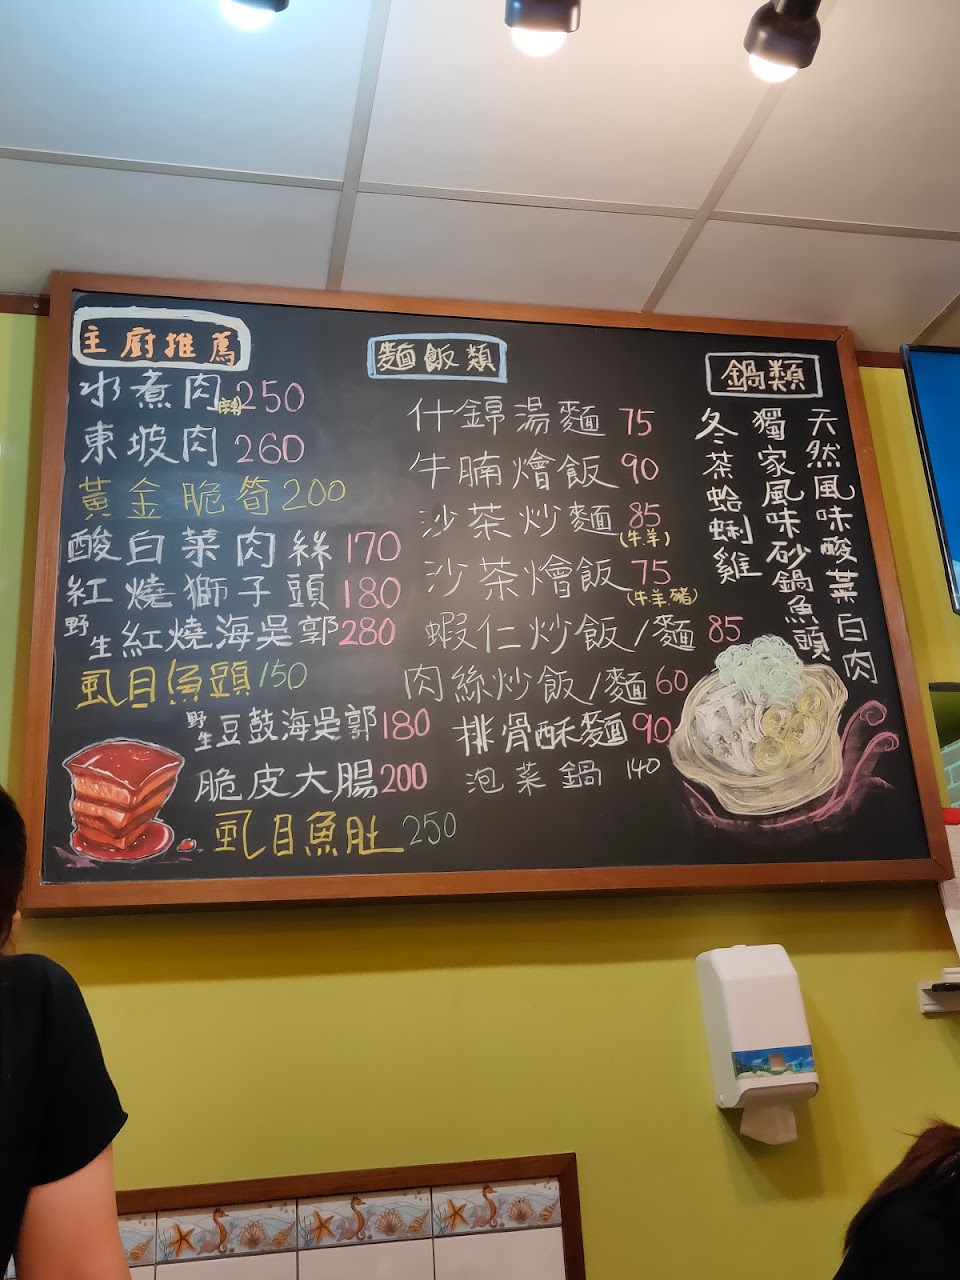 主廚推薦
水煮肉 250
東坡肉 260
黃金脆筍 200
酸白菜肉絲 170
紅燒獅子頭 180
野生紅燒海吳郭 280
虱目魚頭 150
野生豆鼓海吳郭 180
脆皮大腸 200
虱目魚肚 250
麵飯類
什錦湯麵 75
牛腩燴飯 90
沙茶炒麵 85
(牛.羊)
沙茶燴飯 75
(牛.羊.豬)
蝦仁炒飯/麵 85
肉絲炒飯/麵 60
排骨酥麵 90
泡菜鍋 140
鍋類
天然風味酸菜白肉
獨家風味砂鍋魚頭
冬茶蛤蜊雞